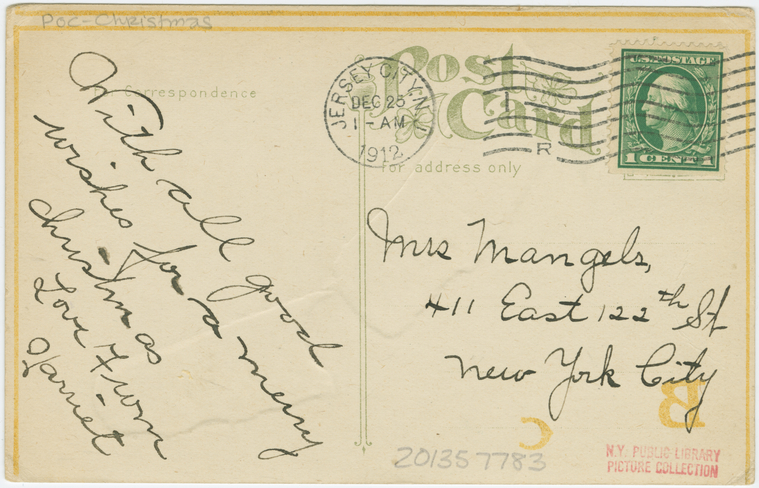 Poc-Christmas
Post
Card
For Correspondence
For address only
JERSEY CITY, N.J.
DEC 25
1 - AM
1912
R
U.S. POSTAGE
1 CENT 1
With all good
wishes for a merry
christmas
Love From
Harriet
Mrs Mangels,
411 East 122th St
New York City
B
C
201357783
N.Y. PUBLIC LIBRARY
PICTURE COLLECTION